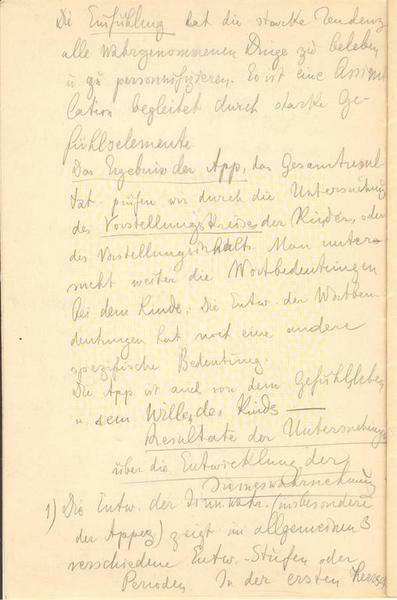 Die Einfühlung hat die starke Tendenz
alle wahrgenommenen Dinge zu beleben
u. zu personnifizieren. Es ist eine Assimi
lation begleitet durch starke Ge-
fühlselemente
Das Ergebnis der App, das Gesamtresul
tat prüfen wir durch die Untersuchung
des Vorstellungskreises der Kinder, oder
des Vorstellungsinhalts. Man unter-
sucht weiter die Wortbedeutungen
bei dem Kinde. Die Entw. der Wortbe
deutungen hat noch eine andere
spezifische Bedeutung.
Die App. ist auch von dem Gefühlsleben
u. dem Willen des Kinds —
Resultate der Untersuchung
über die Entwicklung der
Sinneswahrnehmung
1) Die Entw. der Sinnwahr. (insbesondere
der Apperz) zeigt im allgemeinen 3
verschiedene Entw.-Stufen oder
Perioden. In der ersten